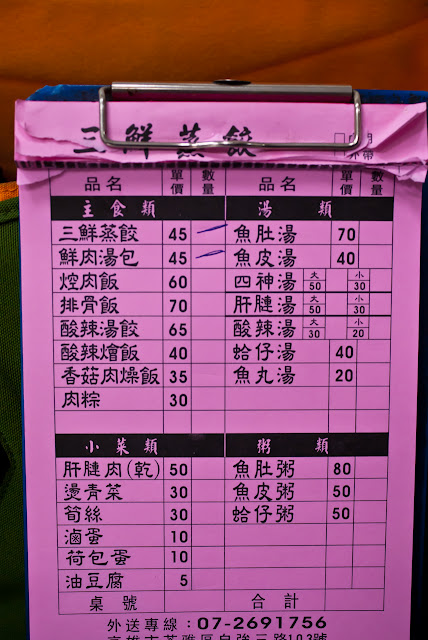 三鮮蒸餃
品名 單價 數量 品名 單價 數量
主食類 湯類
三鮮蒸餃 45 魚肚湯 70
鮮肉湯包 45 魚皮湯 40
焢肉飯 60 四神湯 大50 小30
排骨飯 70 肝腱湯 大50 小30
酸辣湯餃 65 酸辣湯 大30 小20
酸辣燴飯 40 蛤仔湯 40
香菇肉燥飯 35 魚丸湯 20
肉粽 30
小菜類 粥類
肝腱肉(乾) 50 魚肚粥 80
燙青菜 30 魚皮粥 50
筍絲 30 蛤仔粥 50
滷蛋 10
荷包蛋 10
油豆腐 5
桌號 合計
外送專線：07-2691756
高雄市苓雅區自強三路103號